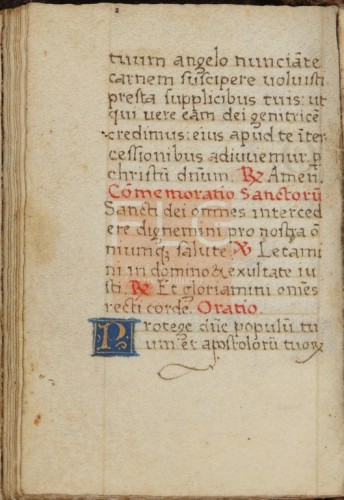 tuum angelo nunciāte
carnem suscipere voluisti
presta supplicibus tuis: ut
qui vere eam dei genitricē
credimus: eius apud te īter
cessionibus adiuvemur. p
christū dnum. ℟ Amen.
Cōmemoratio Sanctorū
Sancti dei omnes interced
ere dignemini pro nostra o
niumq; salute ℣ Letami
ni in domino & exultate iu
sti. ℟ Et gloriamini omēs
recti corde. Oratio.
Protege dn̄e populū tu
um et apostolorū tuoꝝ